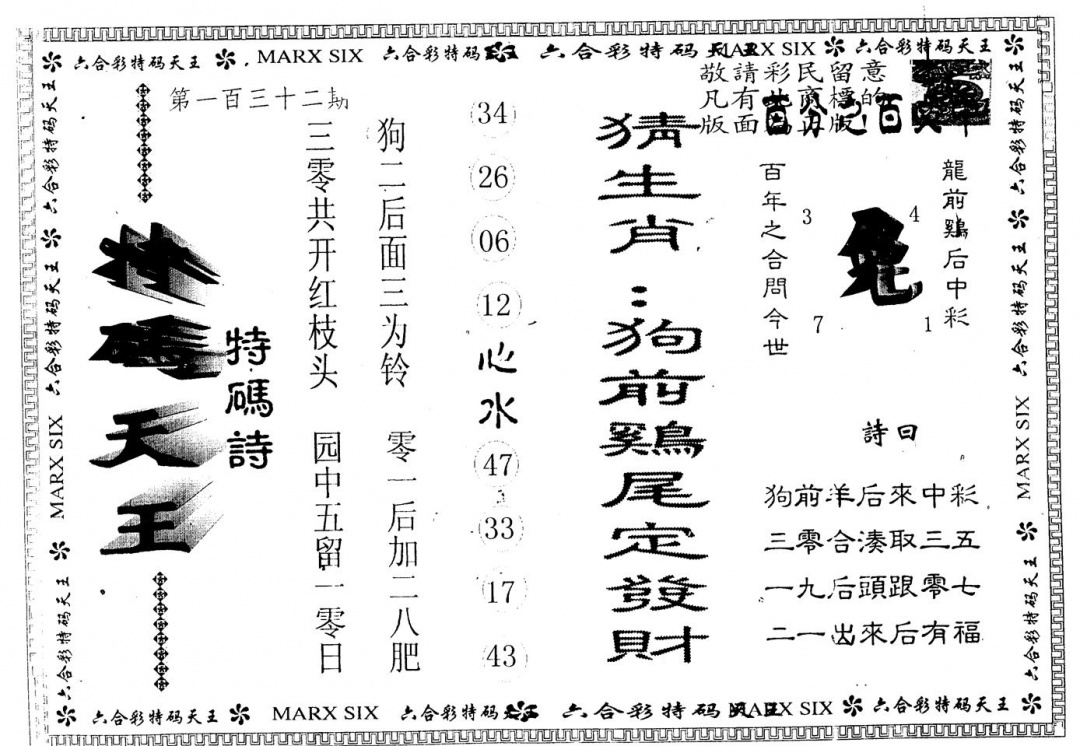 六合彩特码天王 MARX SIX 六合彩特码 六合彩特码 MARX SIX 六合彩特码天王
敬請彩民留意
凡有 商標的
版面 版
百分之百
龍前鷄后中彩
4
1
3
7
百年之合問今世
詩曰
狗前羊后來中彩
三零合湊取三五
一九后頭跟零七
二一出來后有福
猜生肖：狗前鷄尾定發財
34
26
06
12
心水
47
33
17
43
狗二后面三为铃 零一后加二八肥
三零共开红枝头 园中五留一零日
特碼詩
第一百三十二期
特碼天王
六合彩特码天王 六合彩特码天王 MARX SIX 六合彩特码天王
六合彩特码天王 六合彩特码天王 MARX SIX 六合彩特码天王
六合彩特码天王 MARX SIX 六合彩特码 六合彩特码 MARX SIX 六合彩特码天王